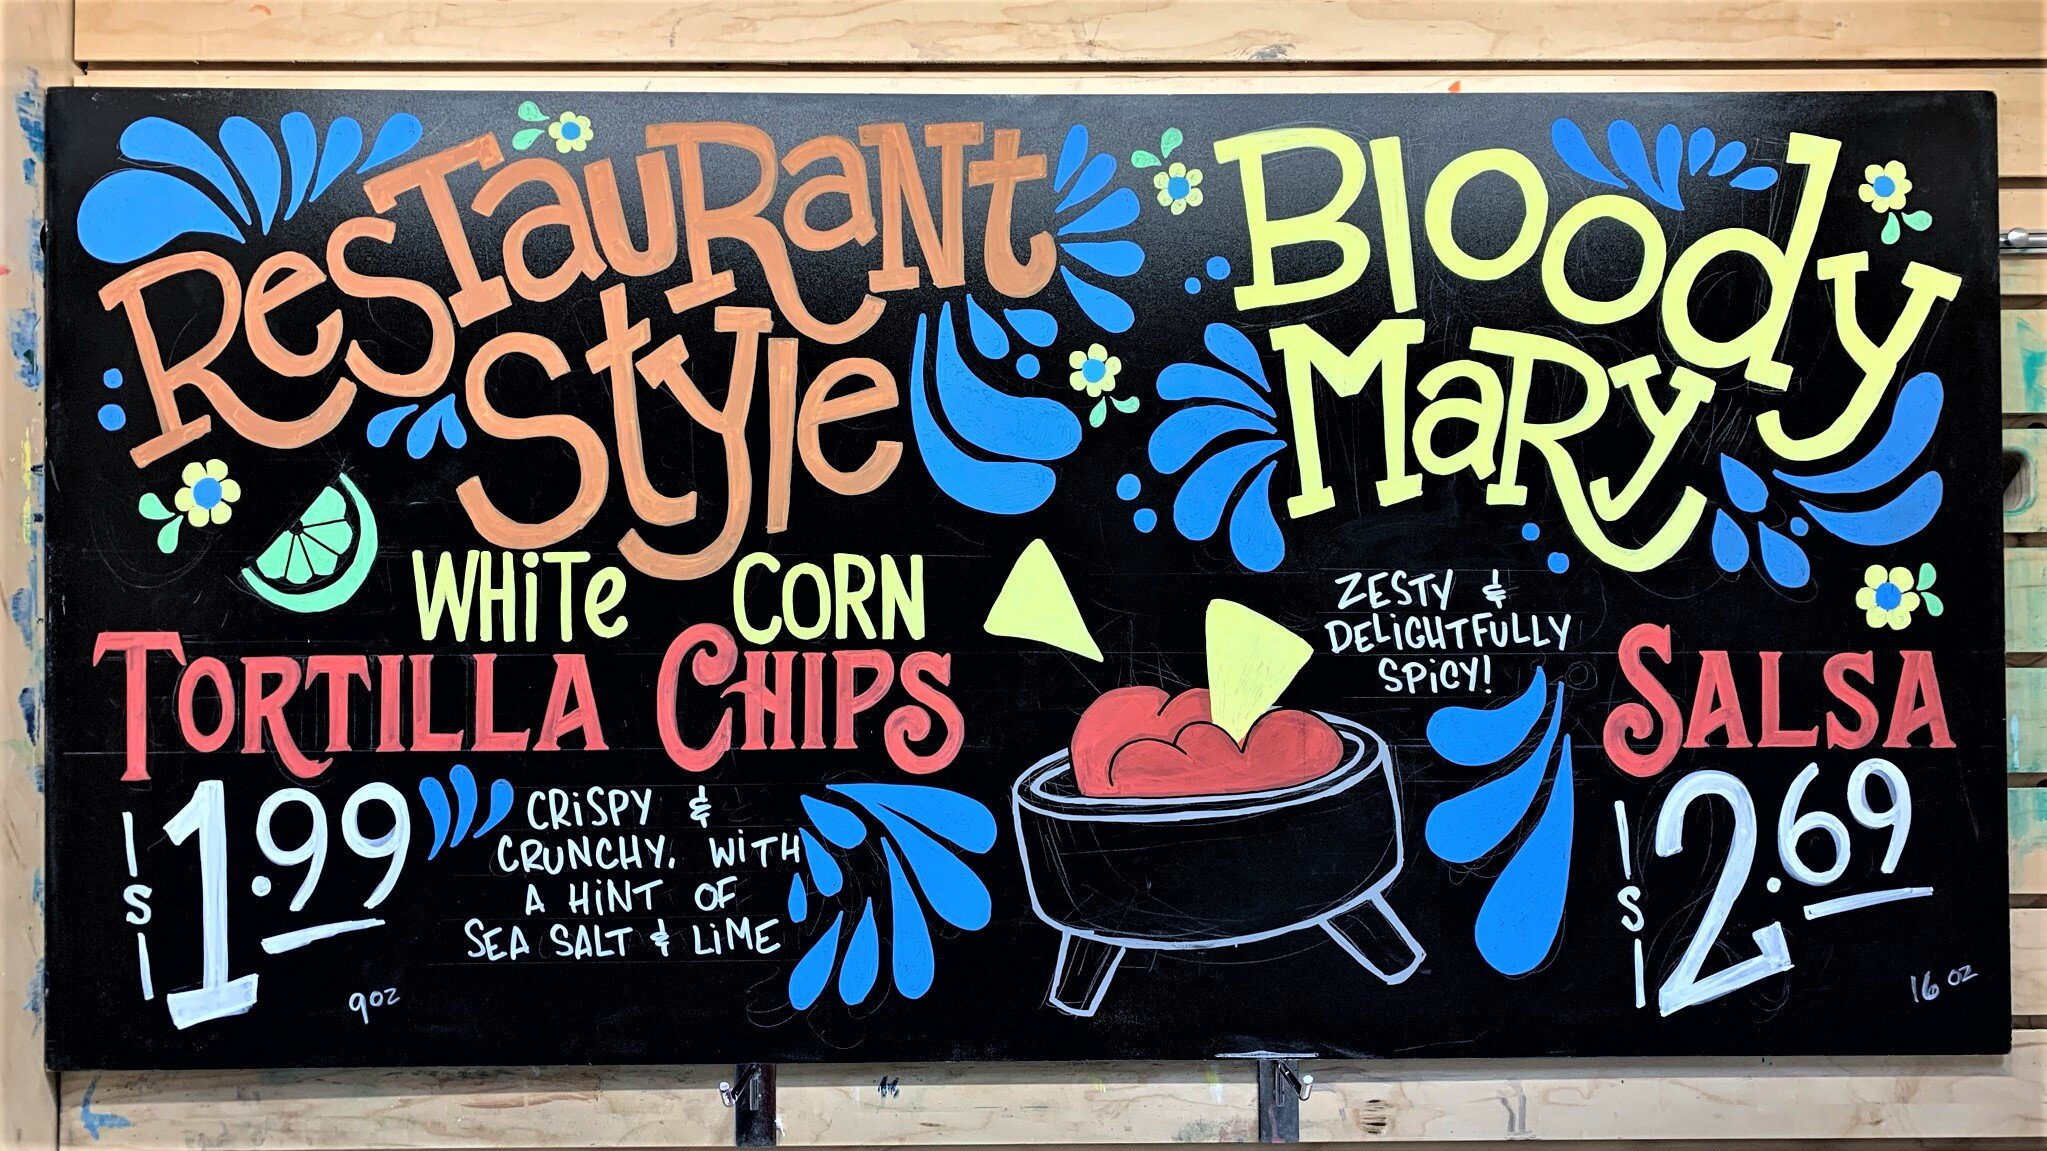 Restaurant
Style
White Corn
Tortilla Chips
$1.99
Crispy &
Crunchy. With
a Hint of
Sea Salt & Lime
9 oz
Bloody
Mary
Zesty &
Delightfully
Spicy!
Salsa
$2.69
16 oz